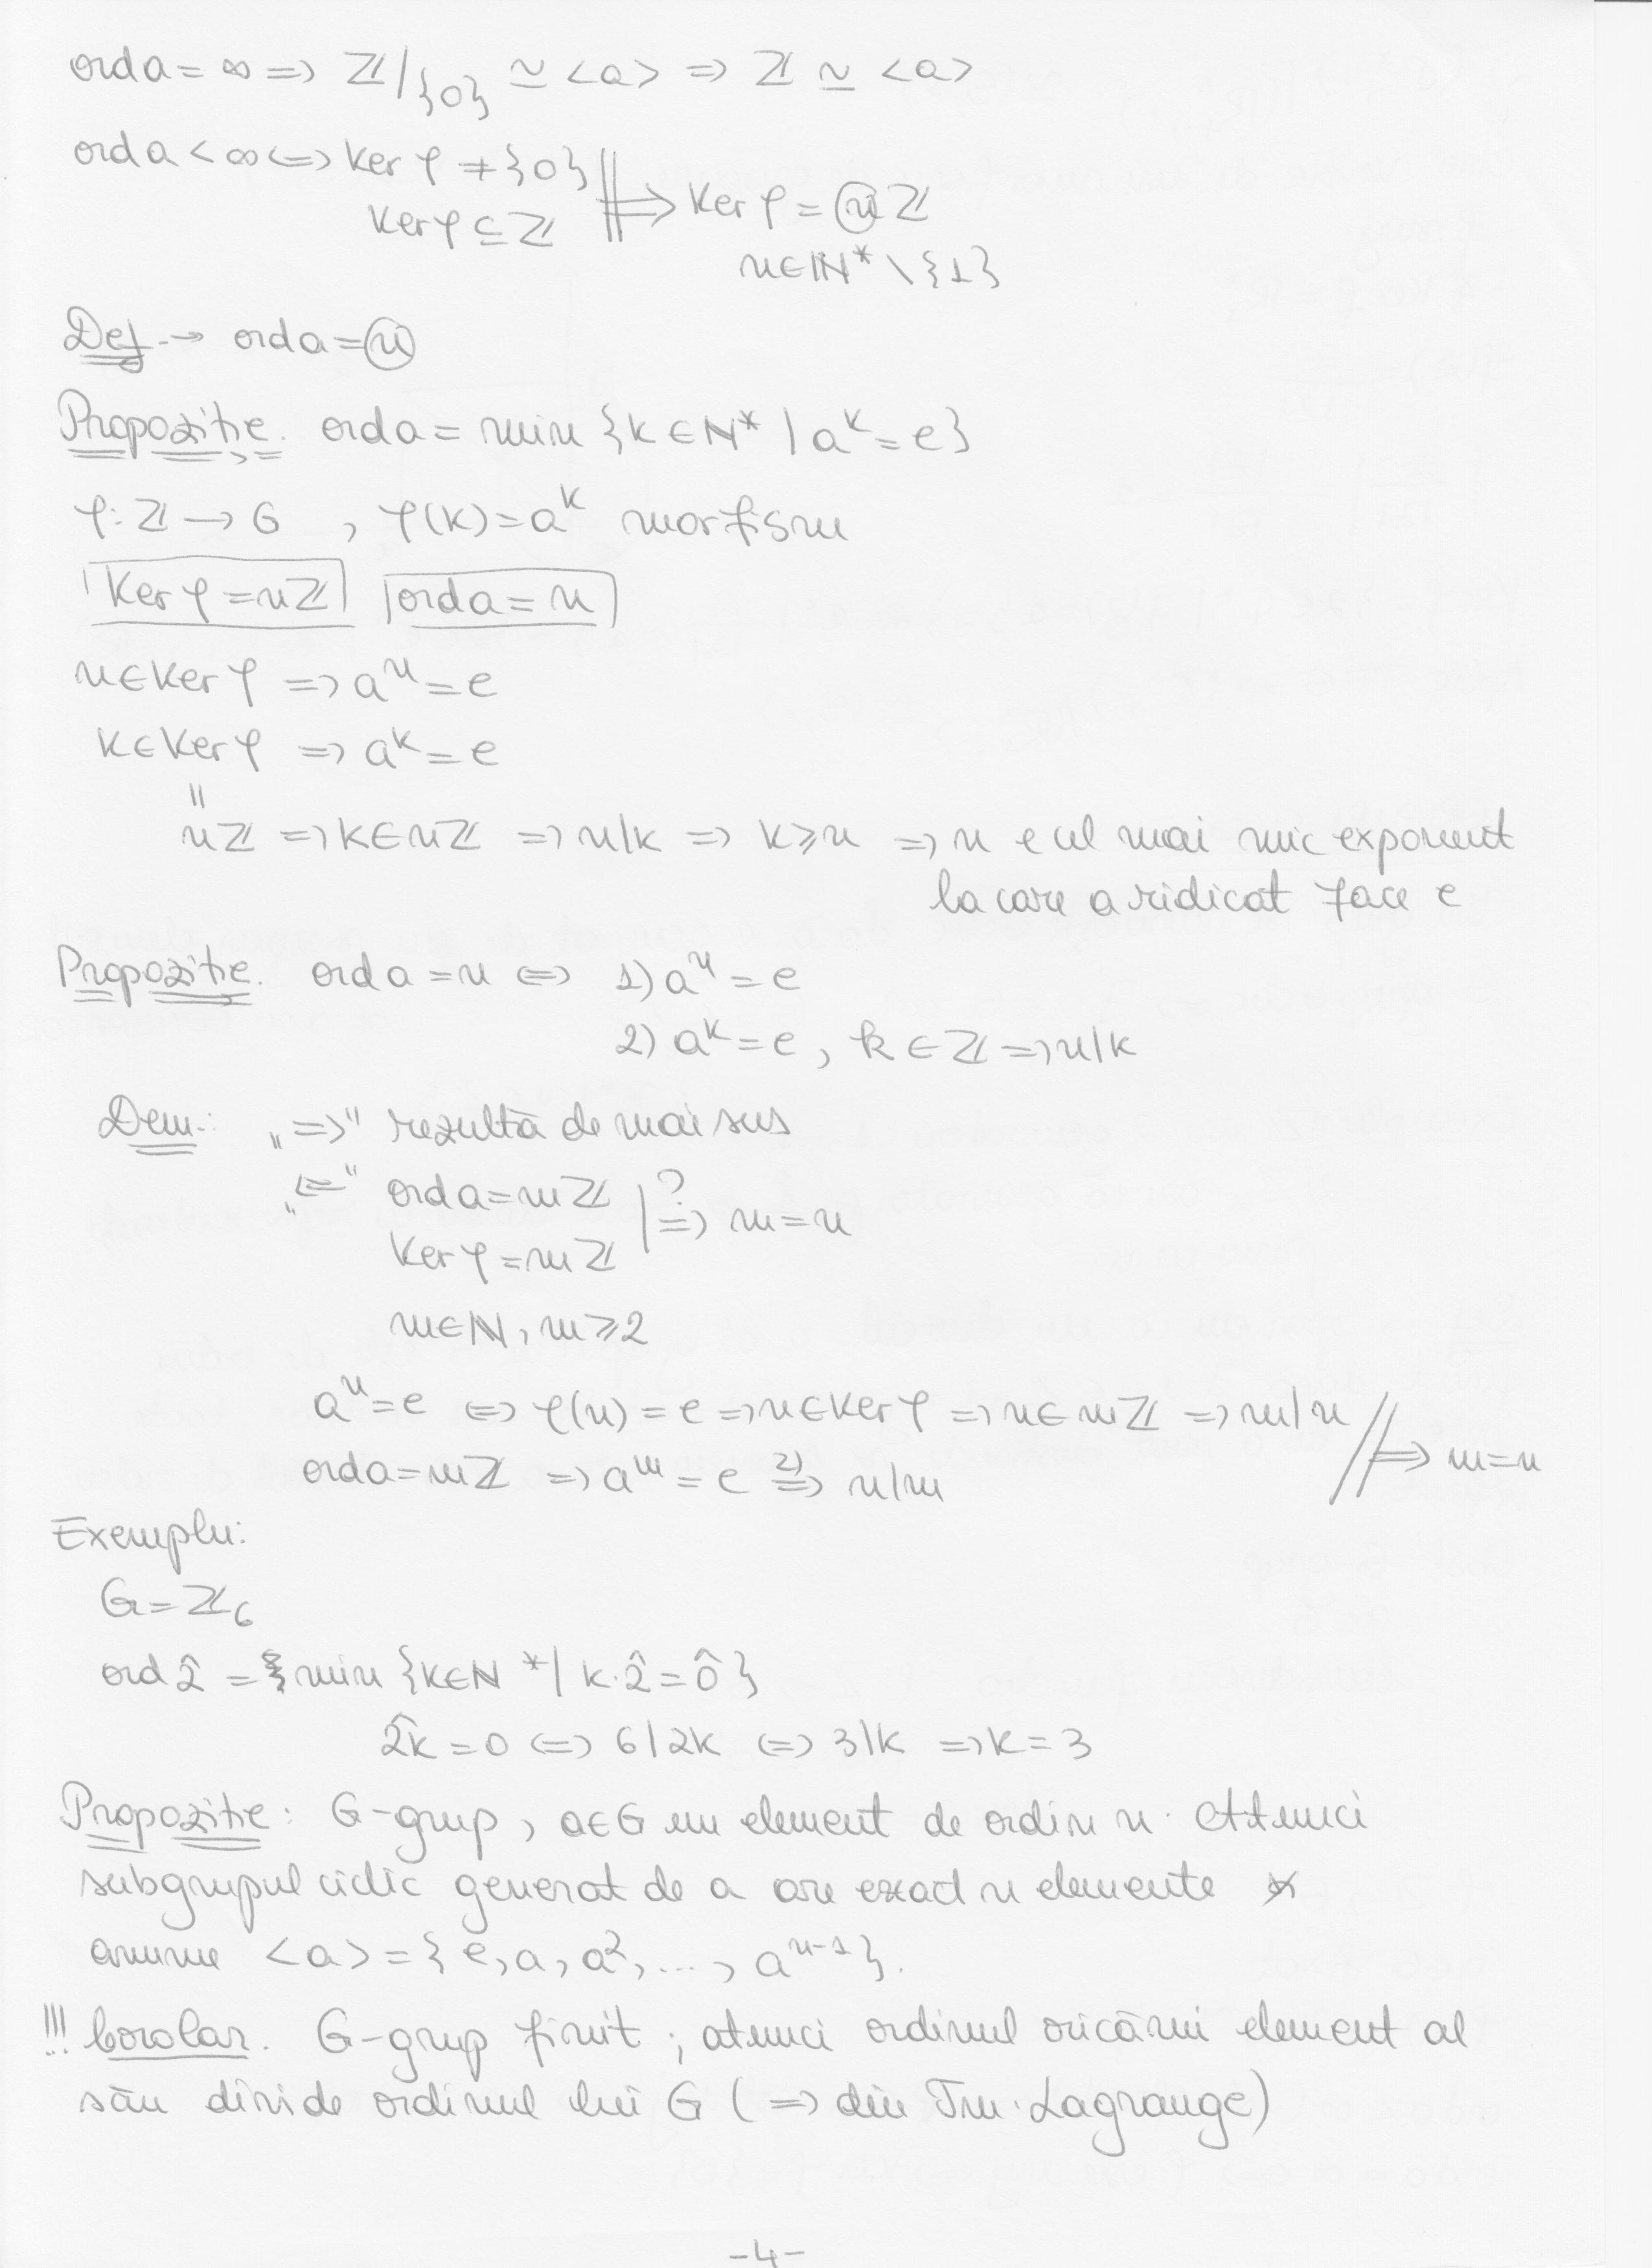 ord a = ∞ => ℤ/{0} ≃ <a> => ℤ ≃ <a>
ord a < ∞ <=> Ker φ ≠ {0} || => Ker φ = nℤ
Ker φ ⊆ ℤ
n∈ℕ* \ {1}
Def → ord a = n
Propoziție. ord a = min {k ∈ ℕ* | a^k = e}
φ: ℤ → G , φ(k) = a^k morfism
Ker φ = nℤ ord a = n
n ∈ Ker φ => a^n = e
k ∈ Ker φ => a^k = e
||
nℤ => k ∈ nℤ => n|k => k ⩾ n => n e cel mai mic exponent
la care a ridicat face e
Propoziție. ord a = n <=> 1) a^n = e
2) a^k = e, k ∈ ℤ => n|k
Dem.: „=>" rezultă de mai sus
„<=" ord a = mℤ | ?=> m = n
Ker φ = mℤ
m∈ℕ, m⩾2
a^n = e <=> φ(n) = e => n∈Ker φ => n∈ mℤ => m|n // => m=n
ord a = mℤ => a^m = e 2)=> n|m
Exemplu:
G = ℤ₆
ord 2̂ = min {k∈ℕ* | k·2̂ = 0̂}
2̂k = 0 <=> 6|2k <=> 3|k => k = 3
Propoziție: G-grup, a∈G un element de ordin n. Atunci
subgrupul ciclic generat de a are exact n elemente
anume <a> = {e, a, a², ..., a^(n-1)}.
!!! Corolar. G-grup finit ; atunci ordinul oricărui element al
său divide ordinul lui G (=> din Tm. Lagrange)
-4-